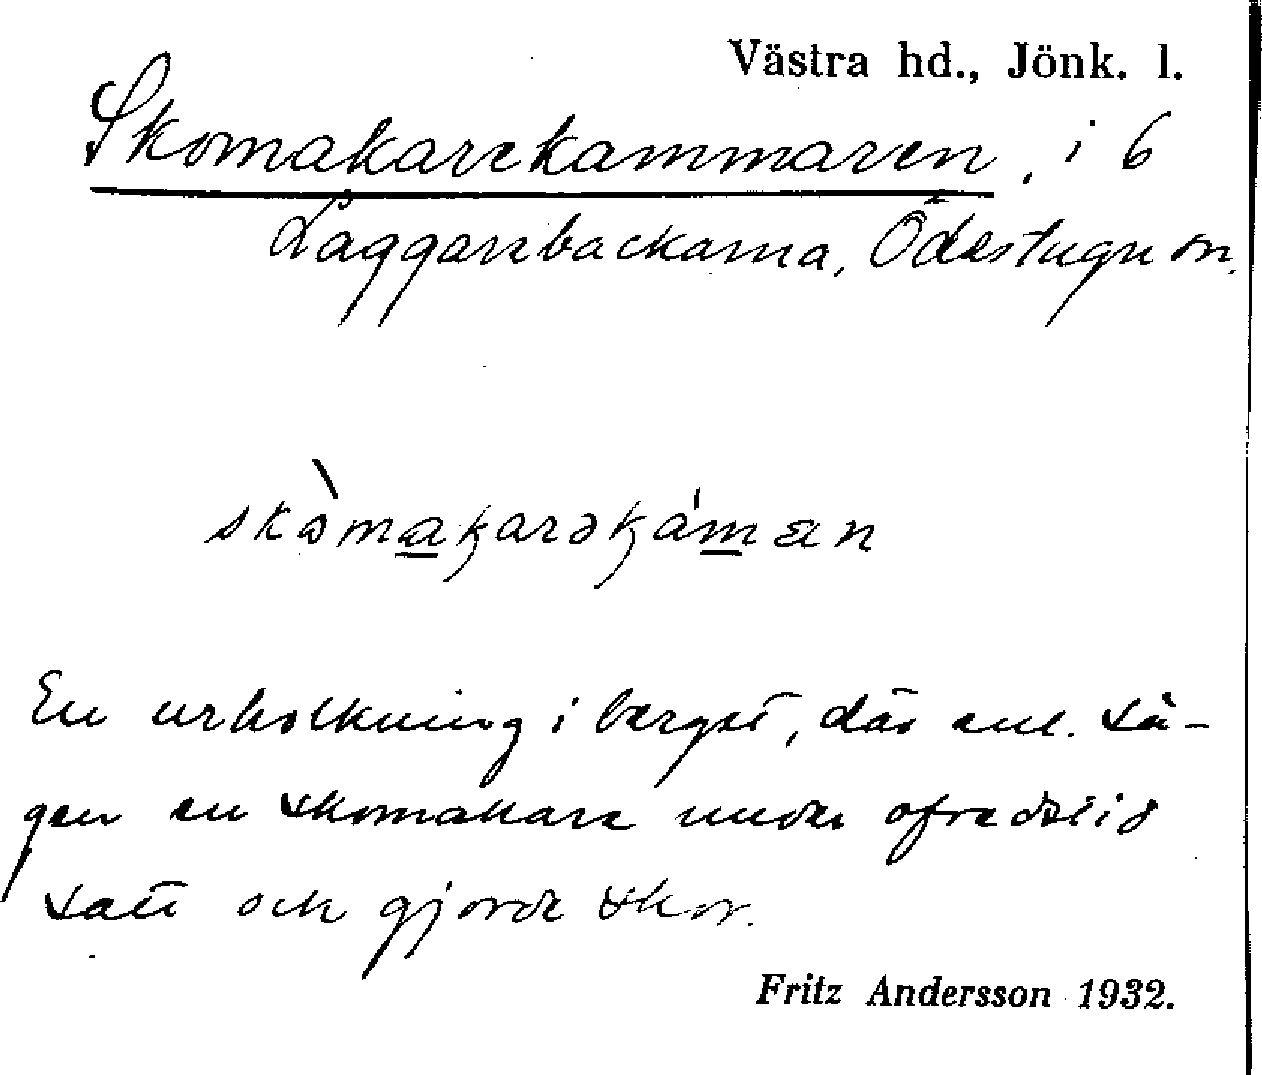 Västra hd., Jönk. l.
Skomakarekammaren, i 6
Laggarebackarna, Ödestugu sn.
skòmakarəkáman
En urholkning i berget, där enl. sä-
gen en skomakare under ofredstid
satt och gjorde skor.
Fritz Andersson 1932.